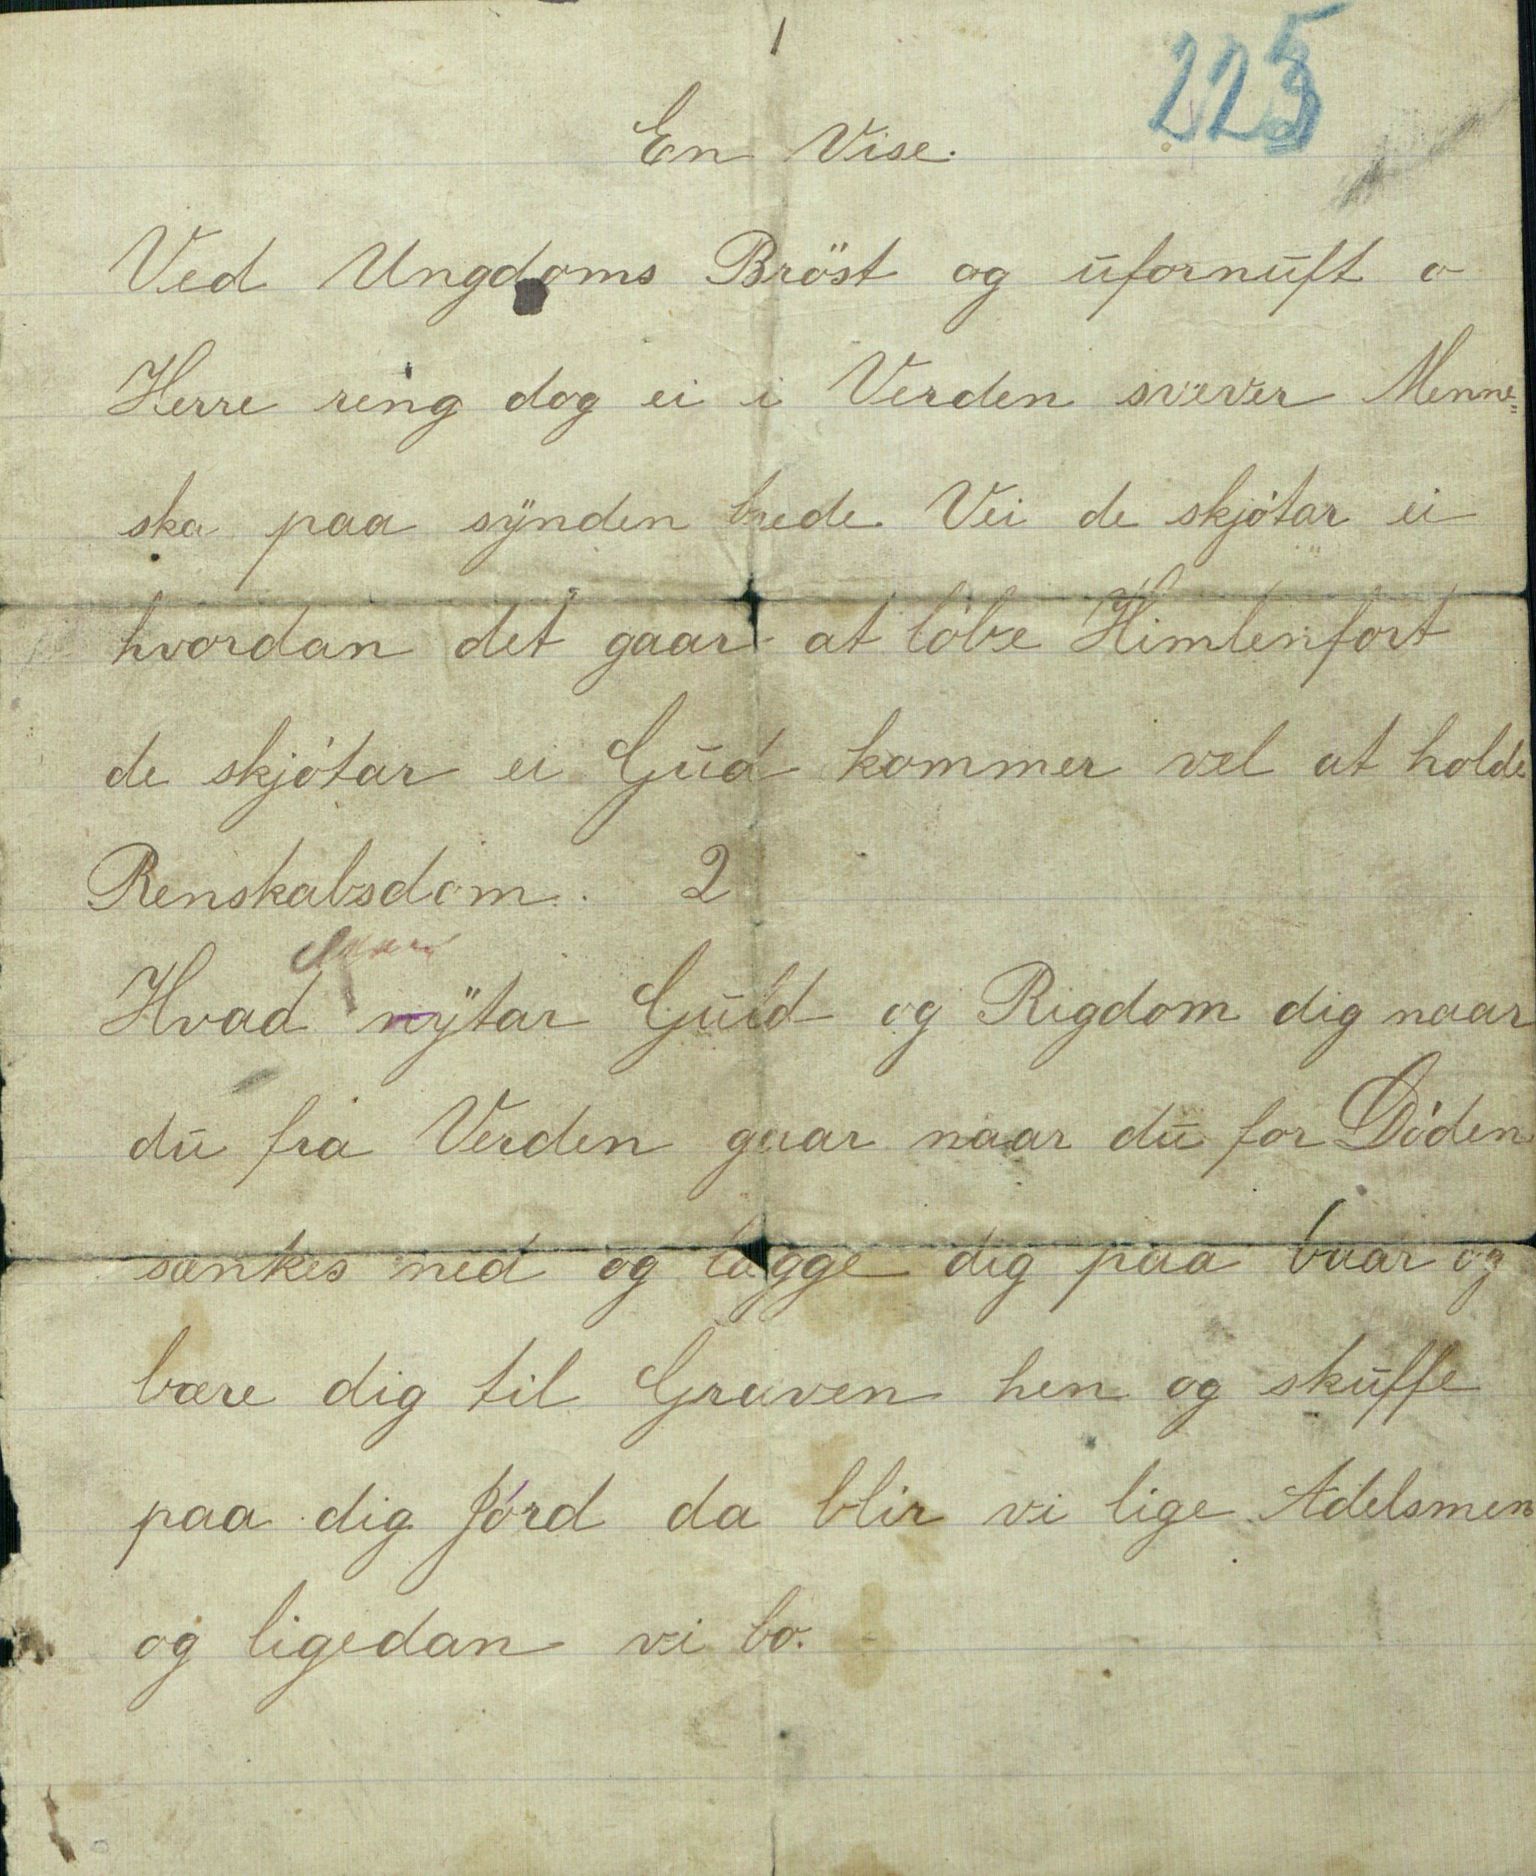 1
225
En Vise.
Ved Ungdoms Bröst og ufornuft o
Herre ring dog ei i Verden svever Menne=
ska paa synden brede Vei de skjötar ei
hvordan det gaar at löbe Himlenfort
de skjötar ei Gud kommer vel at holde
Renskabsdom. 2
Hvad nytar Guld og Rigdom dig naar
du fra Verden gaar naar du for Döden
sænkes ned og lægge dig paa baar og
bære dig til Graven hen og skuffe
paa dig Jörd da blir vi lige Adelsmen
og ligedan vi bo.